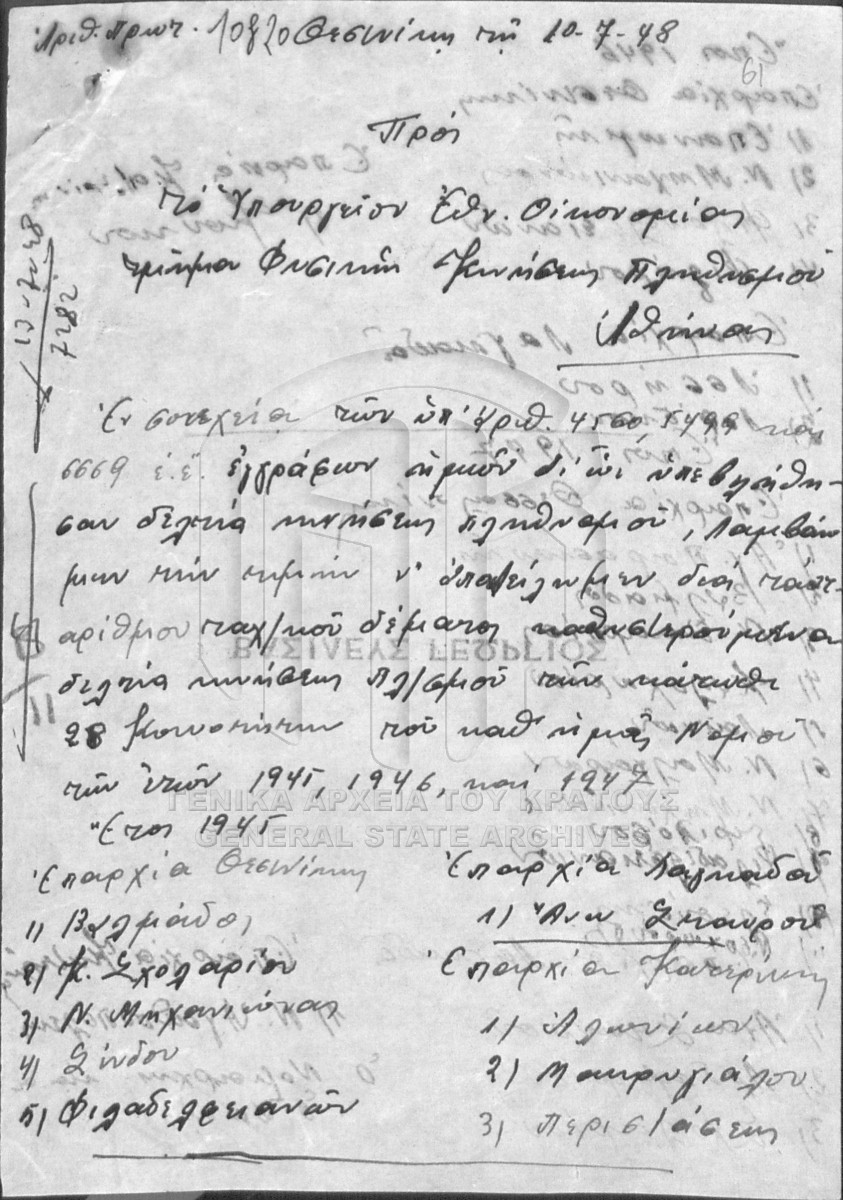 Ἀριθ. Πρωτ. 10820 Θεσ/νίκη τῇ 10-7-48
61
Πρὸς
τὸ Ὑπουργεῖον Ἐθν. Οἰκονομίας
τμῆμα Φυσικῆς Κινήσεως Πληθυσμοῦ
Ἀθήνας
13-7-48
7282
Ἐν συνεχείᾳ τῶν ὑπ' ἀριθ. 4560, 5499 καὶ
6669 ἐ.ἔ. ἐγγράφων ἡμῶν δι' ὧν ὑπεβλήθη-
σαν δελτία κινήσεως πληθυσμοῦ, λαμβάνο
μεν τὴν τιμὴν ν' ἀποστείλωμεν διὰ
αρίθμου ταχ/κοῦ δέματος καθυστερούμενα
δελτία κινήσεως πλ/σμοῦ τῶν κάτωθι
28 Κοινοτήτων τοῦ καθ' ἡμᾶς Νομοῦ
τῶν ἐτῶν 1945, 1946, καὶ 1947
ΒΑΣΙΛΕΥΣ ΓΕΩΡΓΙΟΣ
ΓΕΝΙΚΑ ΑΡΧΕΙΑ ΤΟΥ ΚΡΑΤΟΥΣ
GENERAL STATE ARCHIVES
Ἔτος 1945
Ἐπαρχία Θεσ/νίκης
1) Βαλμάδος
2) Κ. Σχολαρίου
3) Ν. Μηχανιώνας
4) Σίνδου
5) Φιλαδελφειανῶν
Ἐπαρχία Λαγκαδᾶ
1) Ἄνω Σταυροῦ
Ἐπαρχία Κατερίνης
1) Ἁλωνίων
2) Μακρυγιάλου
3) Περιστάσεως